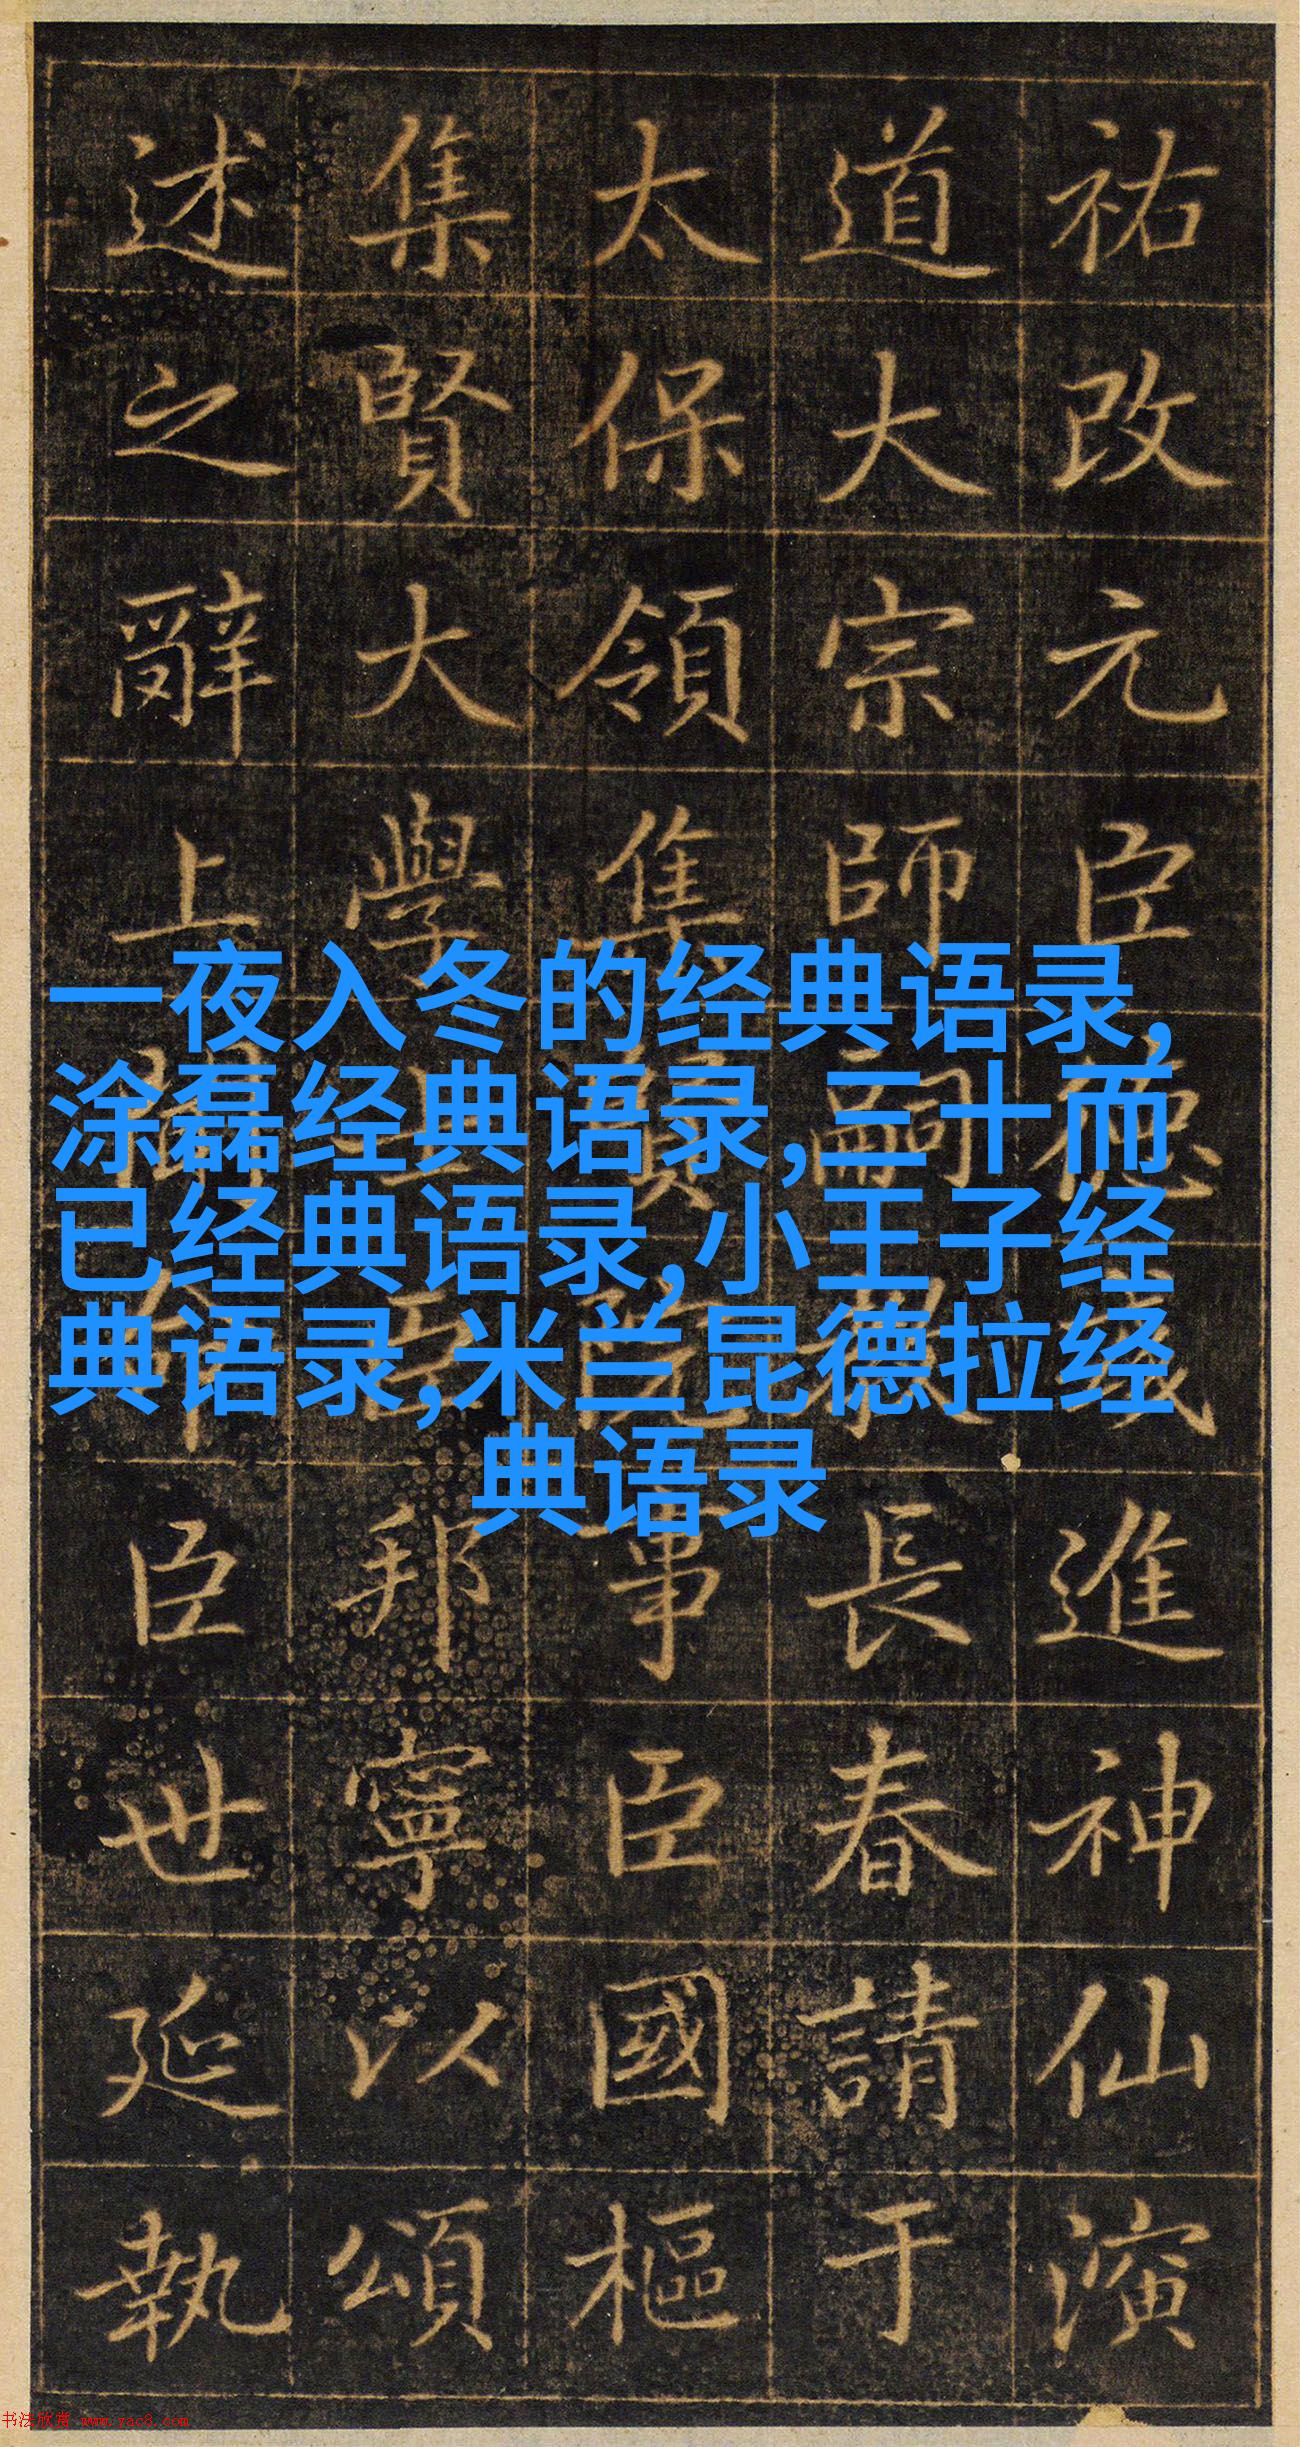 祐改元臣德進神仙演
道大宗師嗣教長春請于
太保領集賢院事臣國樞
集賢大學士臣邦寧以頌
述之辭上聞命臣世延執
一夜入冬的经典语录,
涂磊经典语录,三十而
已经典语录,小王子经
典语录,米兰昆德拉经
典语录
书法欣赏 www.yac8.com